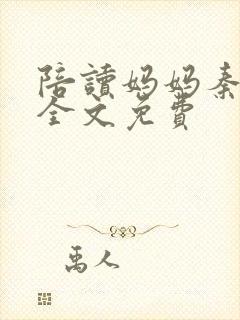 陪讀妈妈秦
全文免費
禹人